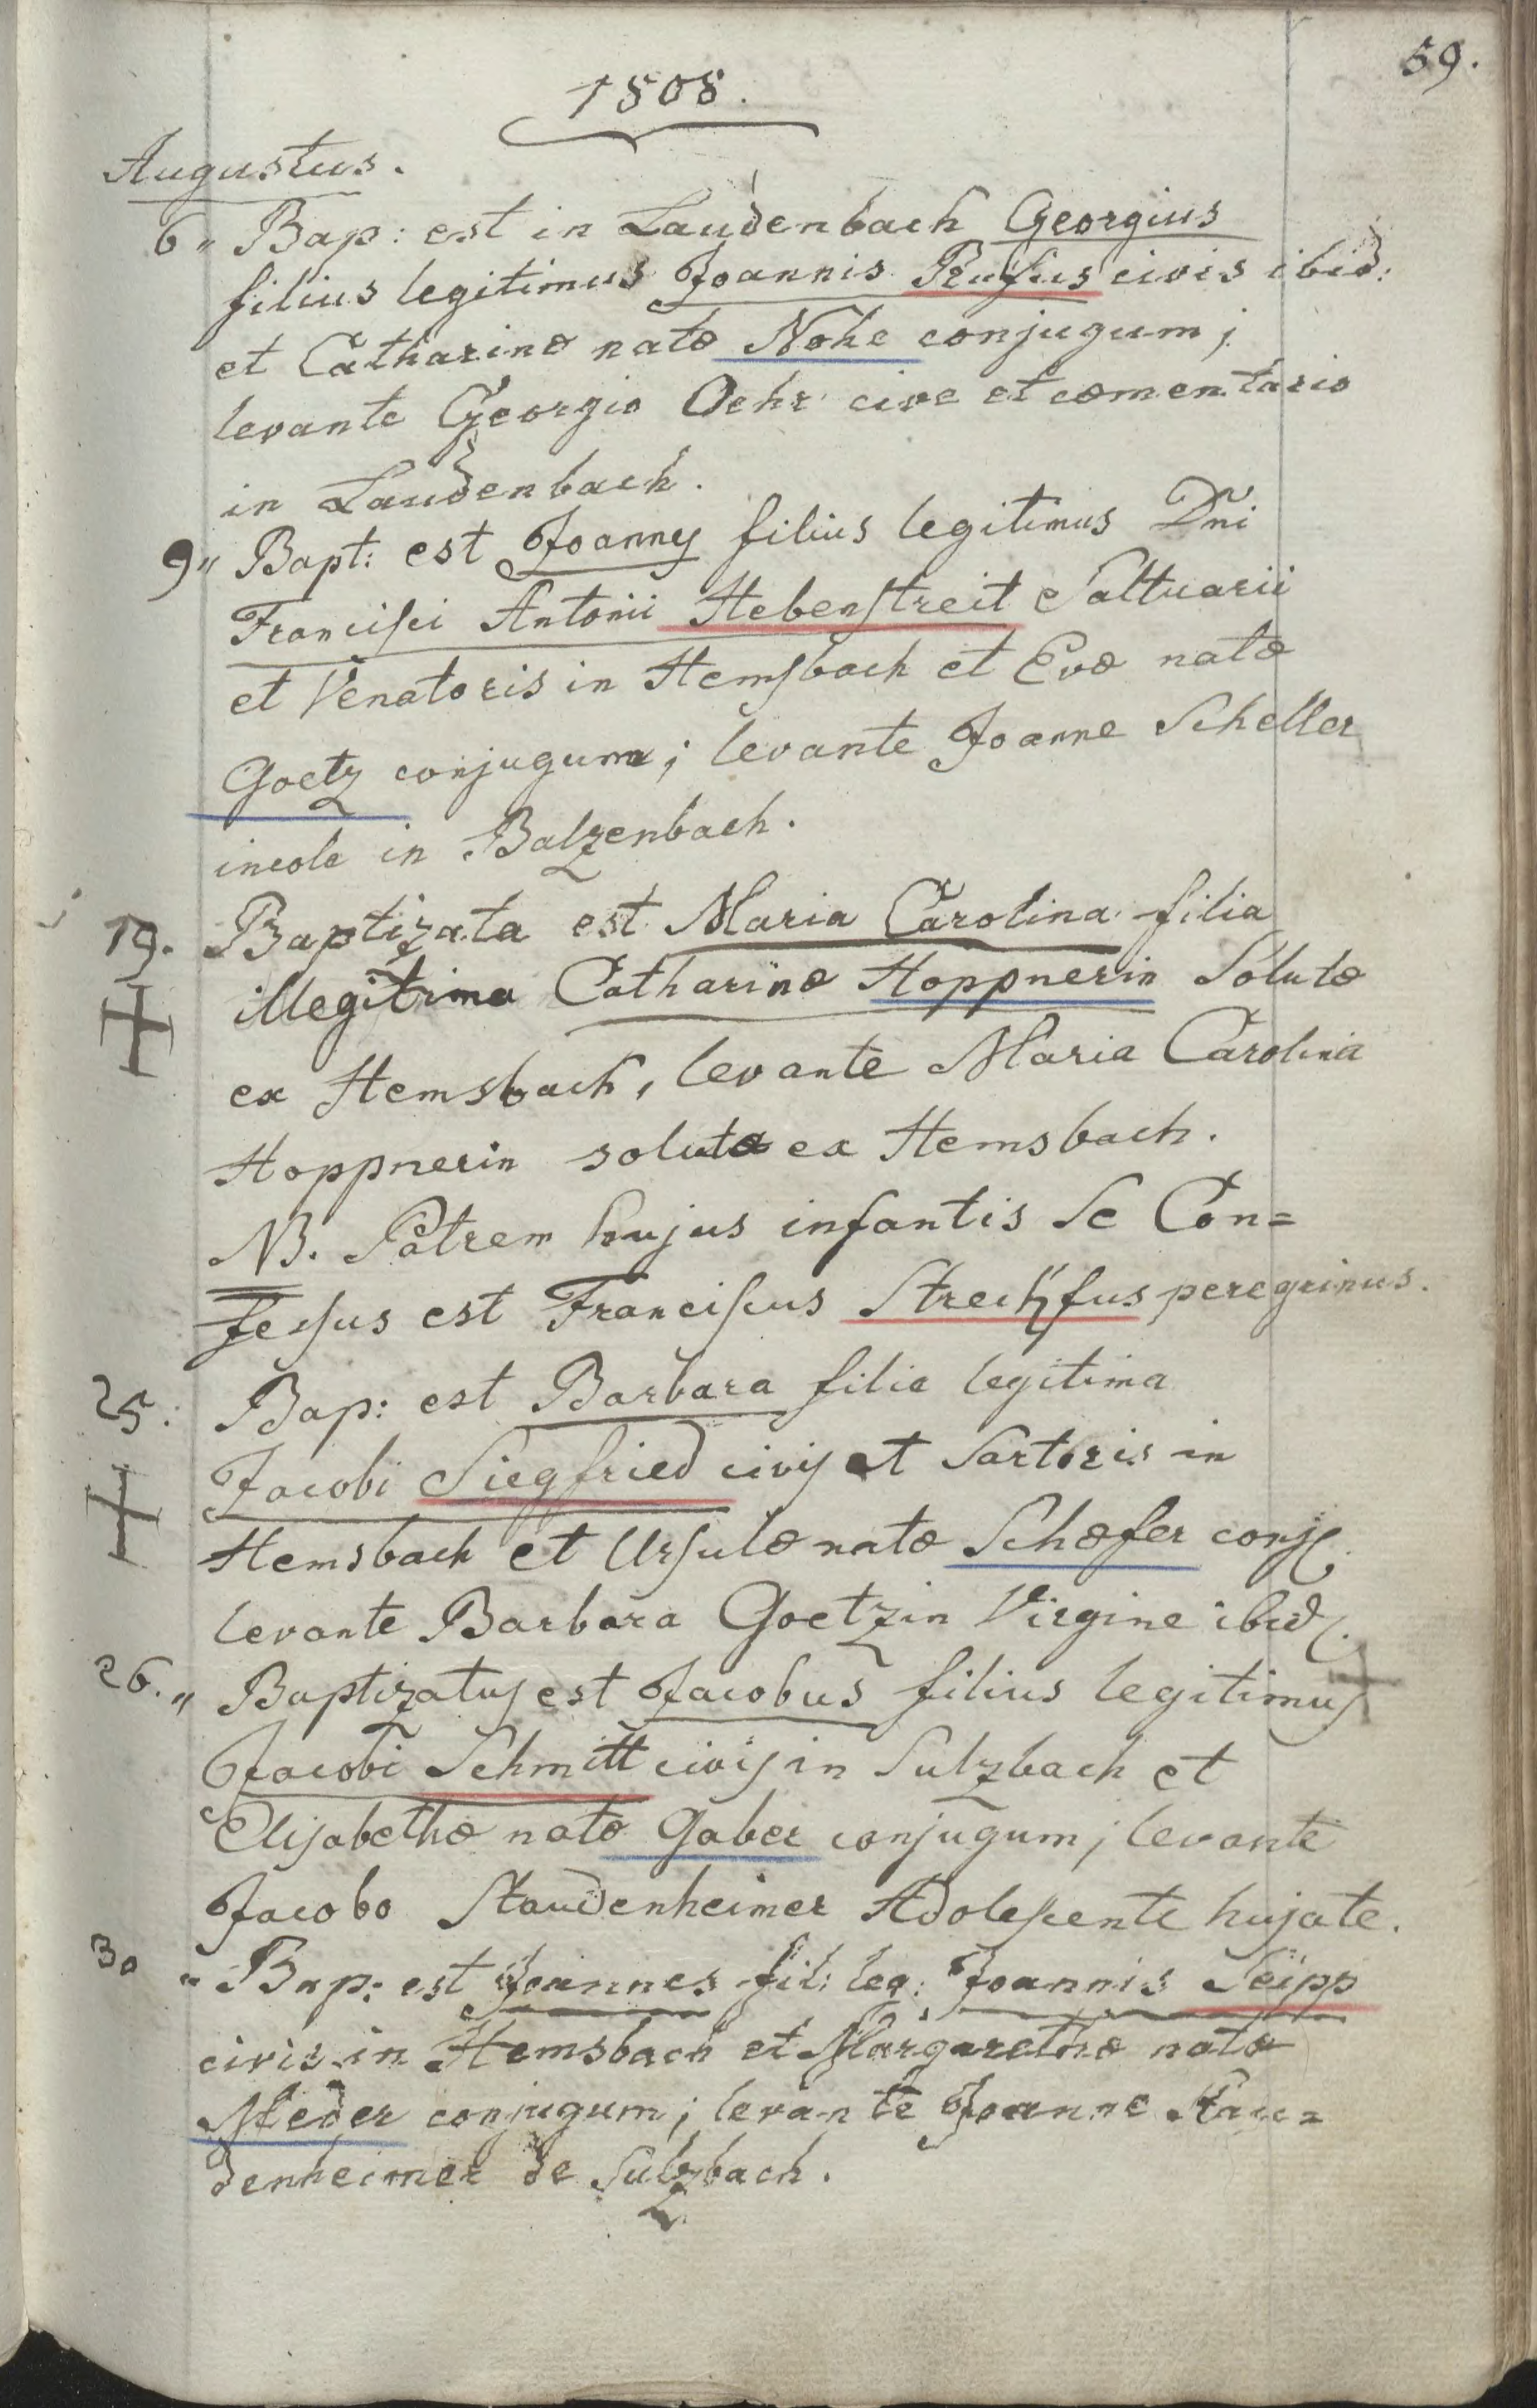 59.
1808.
Augustus.
6 " Bap: est in Laudenbach Georgius
filius legitimus Joannis Rufus civis ibid:
et Catharinæ natæ Nohe conjugum;
levante Georgio Oehr cive et cæmentario
in Laudenbach.
9 " Bapt: est Joannes filius legitimus Dñi
Francisci Antonii Hebenstreit Saltuarii
et Venatoris in Hemsbach et Evæ natæ
Goetz conjugum; levante Joanne Scheller
incola in Balzenbach.
19. Baptizata est Maria Carolina filia
illegitima Catharinæ Hoppnerin Solutæ
ex Hemsbach, levante Maria Carolina
Hoppnerin soluta ex Hemsbach.
NB. Patrem hujus infantis se Con=
fessus est Franciscus Strechfus peregrinus.
25. Bap: est Barbara filia legitima
Jacobi Siegfried civis et Sartoris in
Hemsbach et Ursulæ natæ Schæfer conj.
levante Barbara Goetzin Virgine ibid.
26. " Baptizatus est Jacobus filius legitimus
Jacobi Schmitt civis in Sulzbach et
Elisabethæ natæ Gaber conjugum; levante
Jacobo Staudenheimer Adolescente hujate.
30 " Bap: est Joannes fil: leg: Joannis Seipp
civis in Hemsbach et Margarethæ natæ
Meder conjugum; levante Joanne Stau=
denheimer de Sulzbach.